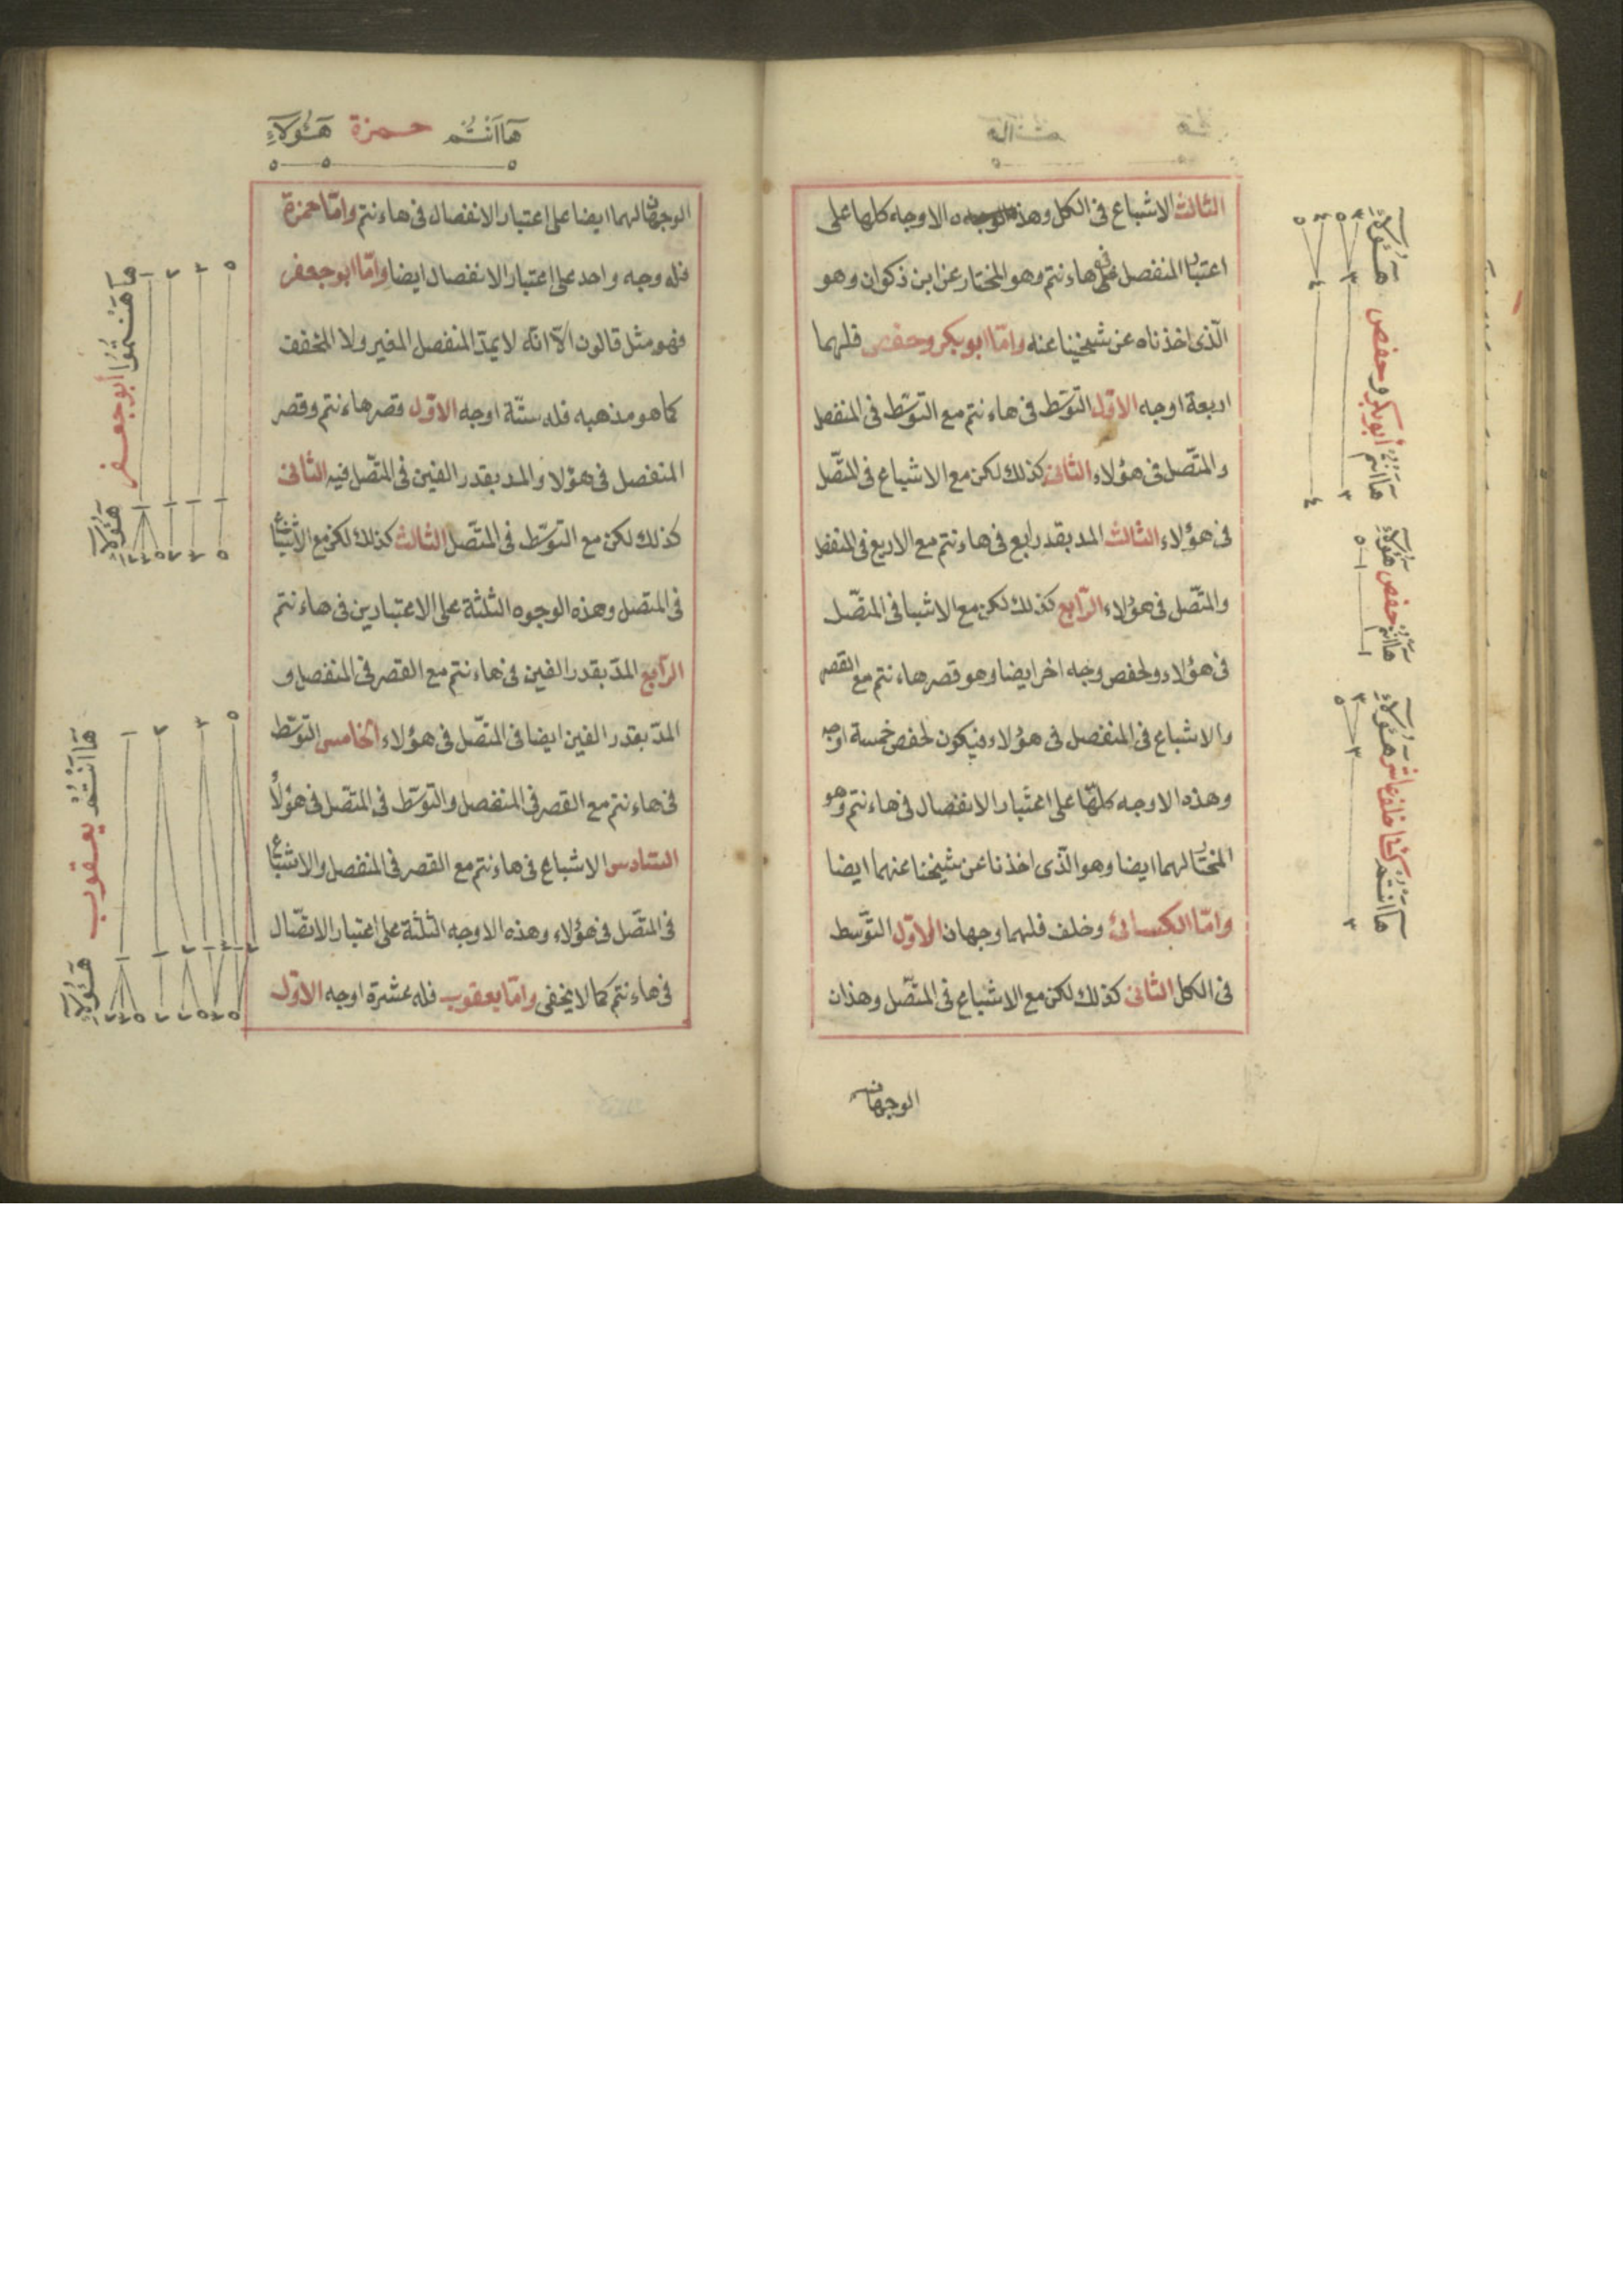 الثالث الاشباع فى الكل وهذه الاوجه كلها على
اعتبار المنفصل فى هاءنتم وهو المختار عن ابن ذكوان وهو
الّذى اخذناه عن شيخينا عنه وامّا ابو بكر وحفص فلهما
اربعة اوجه الاوّل التوسّط فى هاءنتم مع التوسّط فى المنفصل
والمتّصل فى هؤلاء الثانى كذلك لكن مع الاشباع فى المتّصل
فى هؤلاء الثالث المد بقدر ربع فى هاءنتم مع الاربع فى المنفصل
والمتّصل فى هؤلاء الرّابع كذلك لكن مع الاشباع فى المتّصل
فى هؤلاء ولحفص وجه اخر ايضا وهو قصر هاءنتم مع القصر
والاشباع فى المنفصل فى هؤلاء فيكون لحفص خمسة اوجه
وهذه الاوجه كلّها على اعتبار الانفصال فى هاءنتم وهو
المختار لهما ايضا وهو الّذى اخذنا عن شيخنا عنهما ايضا
وامّا الكسائى وخلف فلهما وجهان الاوّل التوّسط
فى الكل الثانى كذلك لكن مع الاشباع فى المتّصل وهذان
الوجهان
هَؤُلَاءِ أبوبكر وحفص هاانتم
هؤلاء حفص هاانتم
هَؤُلَاءِ خلف عاشر كسا هاانتم
هَاانْتُم حمزة هَؤُلَاءِ
الوجهان لهما ايضا على اعتبار الانفصال فى هاءنتم وامّا حمزة
فله وجه واحد على اعتبار الانفصال ايضا وامّا ابو جعفر
فهو مثل قالون الاّ انّه لا يمدّ المنفصل المغير ولا المخفف
كما هو مذهبه فله ستّة اوجه الاوّل قصر هاءنتم وقصر
المنفصل فى هؤلا والمد بقدر الفين فى المتّصل فيه الثانى
كذلك لكن مع التوسّط فى المتّصل الثالث كذلك لكن مع الاشباع
فى المتصل وهذه الوجوه الثلثة على الاعتبارين فى هاءنتم
الرّابع المدّ بقدر الفين فى هاءنتم مع القصر فى المنفصل و
المدّ بقدر الفين ايضا فى المتّصل فى هؤلاء الخامس التوسّط
فى هاءنتم مع القصر فى المنفصل والتوسّط فى المتّصل فى هؤلاء
السّادس الاشباع فى هاءنتم مع القصر فى المنفصل والاشباع
فى المتّصل فى هؤلاء وهذه الاوجه الثلثة على اعتبار الاتصّال
فى هاءنتم كما لا يخفى وامّا يعقوب فله عشرة اوجه الاوّل
أبو جعفر هَؤُلَاءِ
هَاانْتُم يعقوب هَؤُلَاءِ